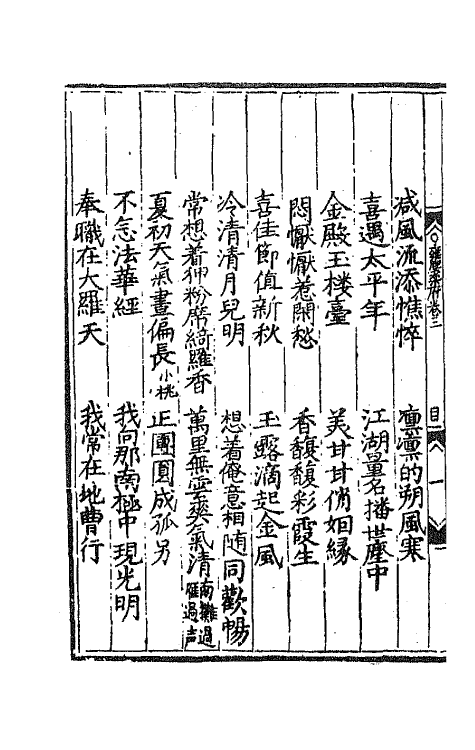 雍熙樂府卷三
目
一
減風流添憔悴　凛凛的朔風寒
喜遇太平年　江湖量名播世塵中
金殿玉楼臺　美甘甘俏姻緣
悶懨懨惹閑愁　香馥馥彩霞生
喜佳節值新秋　玉露滴起金風
冷清清月兒明　想着俺意相随同歡暢
常想着狎粉席綺羅香　萬里無雲爽氣清南雁過声
夏初天氣晝偏長小桃　正團圓成孤另
不念法華經　我向那南極中現光明
奉職在大羅天　我常在地曹行